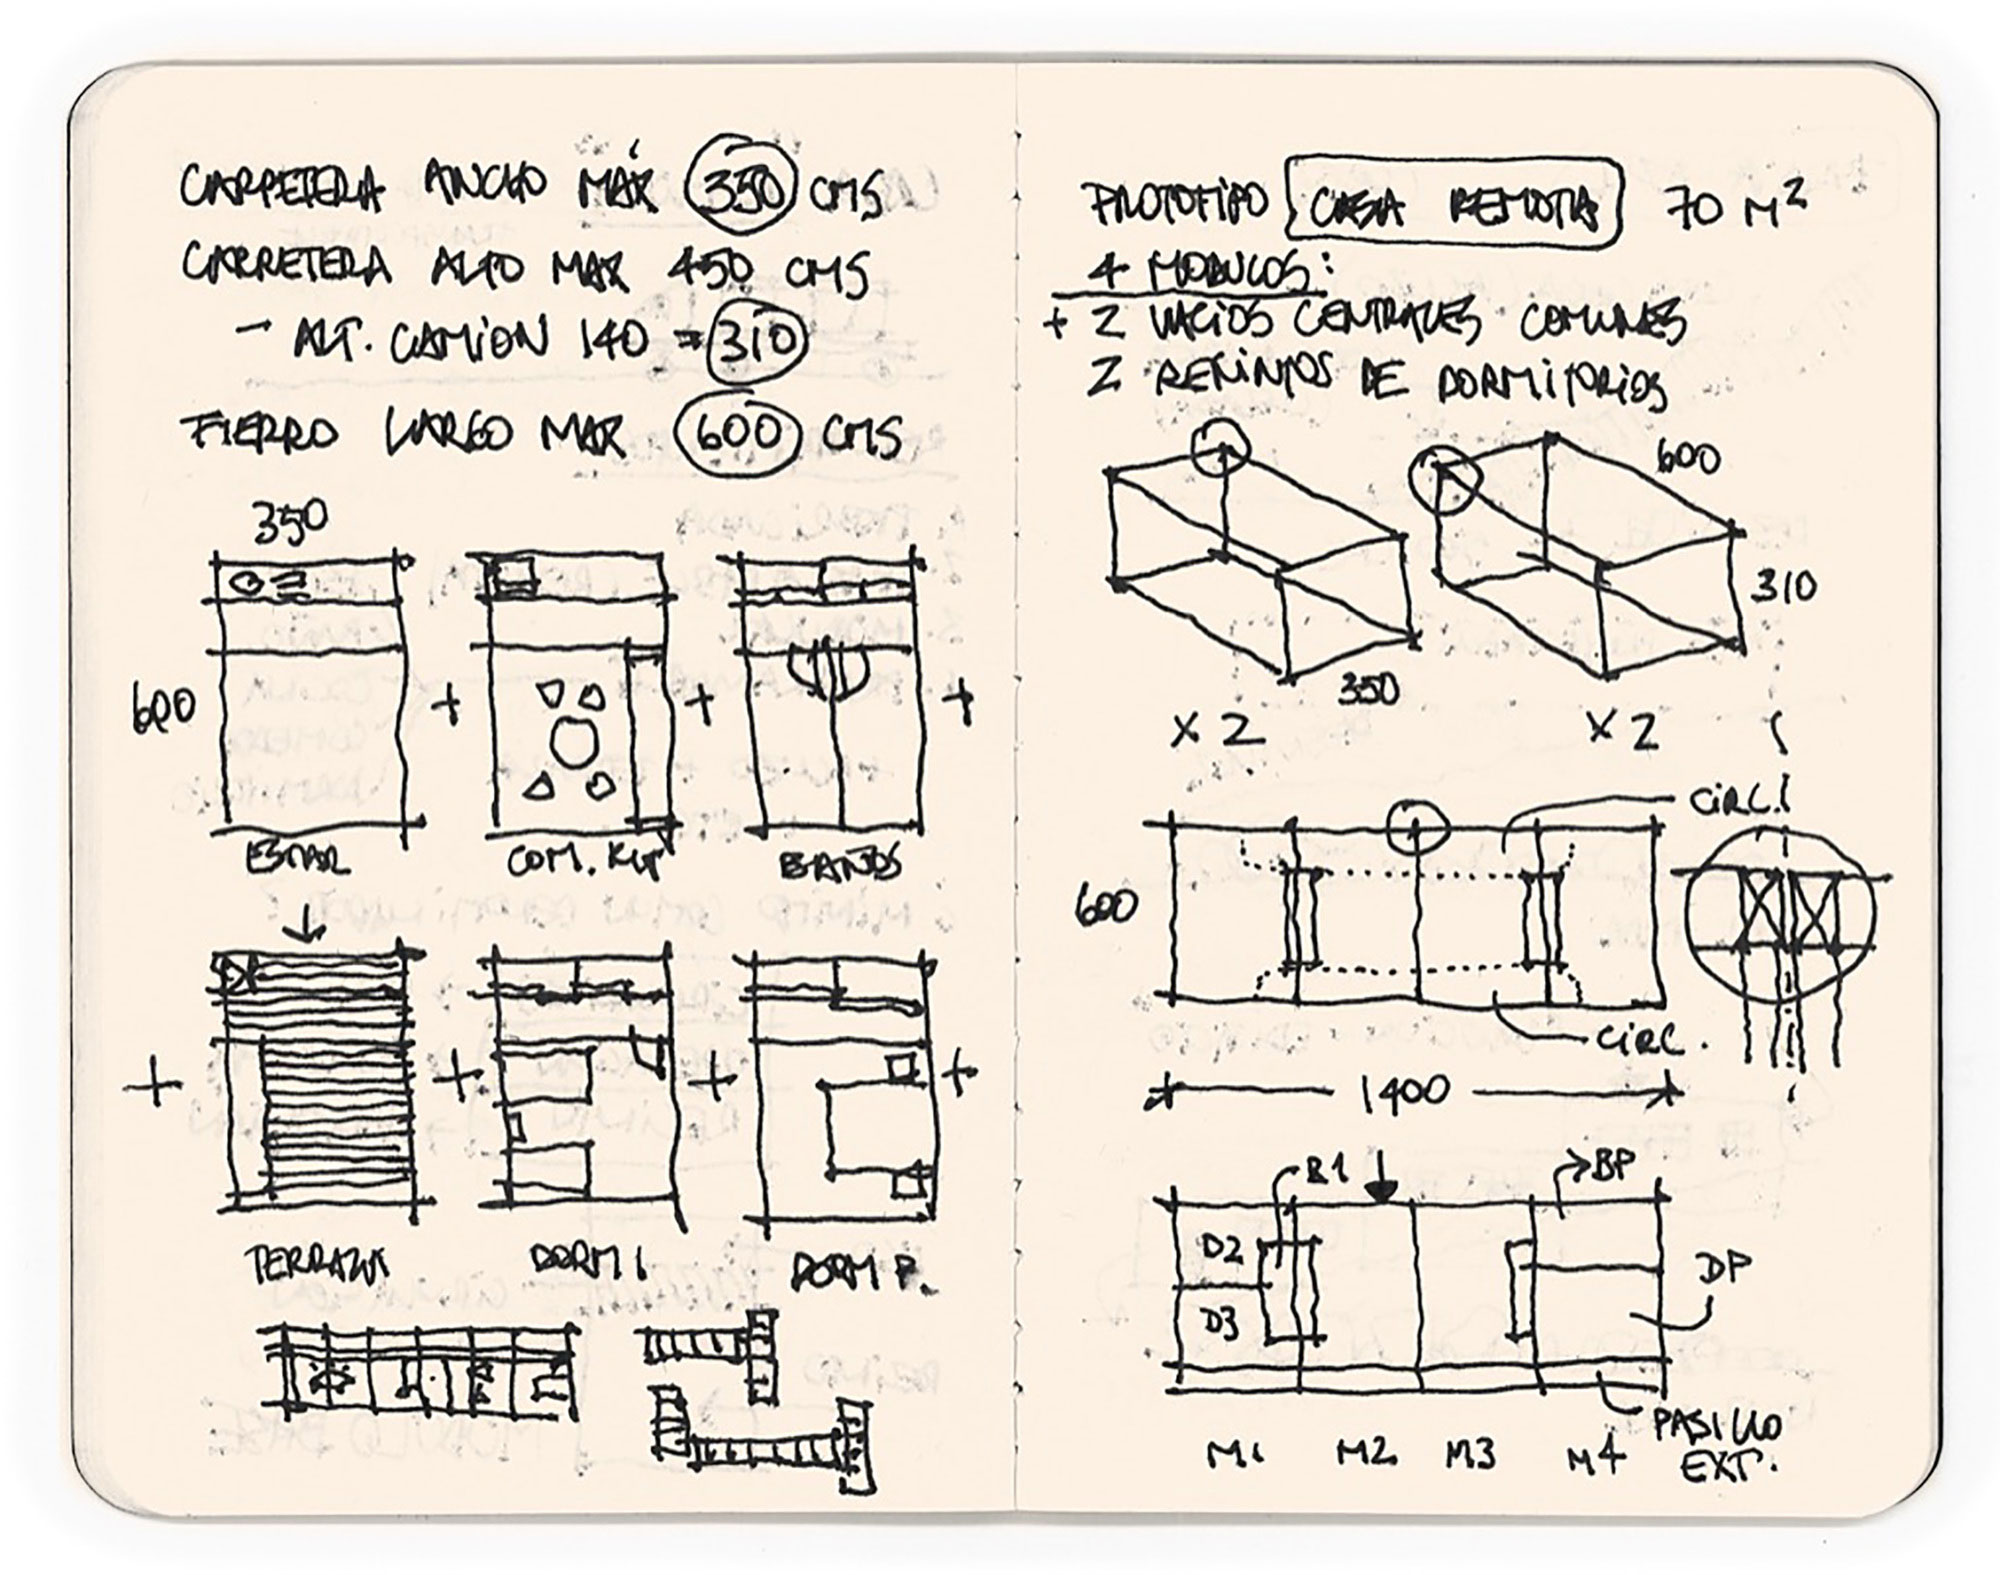 CARRETERA ANCHO MÁX 350 CMS
CARRETERA ALTO MAX 450 CMS
- ALT. CAMION 140 = 310
FIERRO LARGO MAX 600 CMS
350
600
+ + +
ESTAR COM. KIT BAÑOS
+ + + +
TERRAZA DORM 1 DORM P.
PROTOTIPO CASA REMOTA 70 M²
4 MODULOS:
+ 2 VACIOS CENTRALES COMUNES
2 RECINTOS DE DORMITORIOS
600
310
350
X 2 X 2
CIRC.
600
CIRC.
1400
B1 BP
D2
DP
D3
PASILLO
EXT.
M1 M2 M3 M4